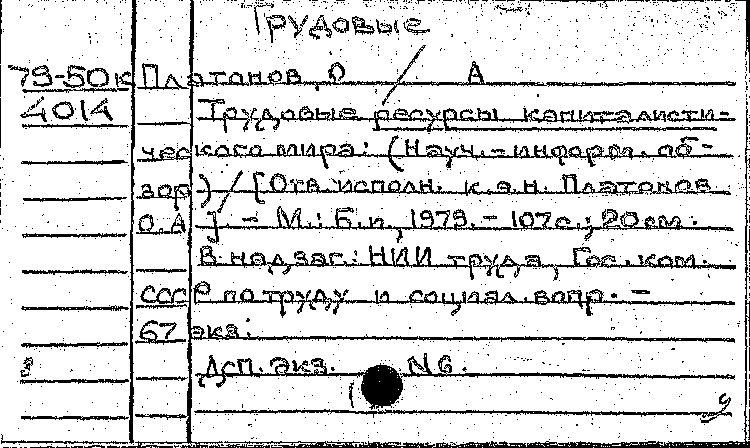 Трудовые
79-50к Платонов, О А
4014 Трудовые ресурсы капиталисти-
ческого мира: (Науч.-информ. об-
зор) / [Отв. исполн. к.э.н. Платонов
О.А]. - М.: Б.и., 1979. - 107с.; 20см.
В надзаг.: НИИ труда, Гос. ком.
СССР по труду и социал. вопр. -
67 экз.
Дсп. экз. N6.